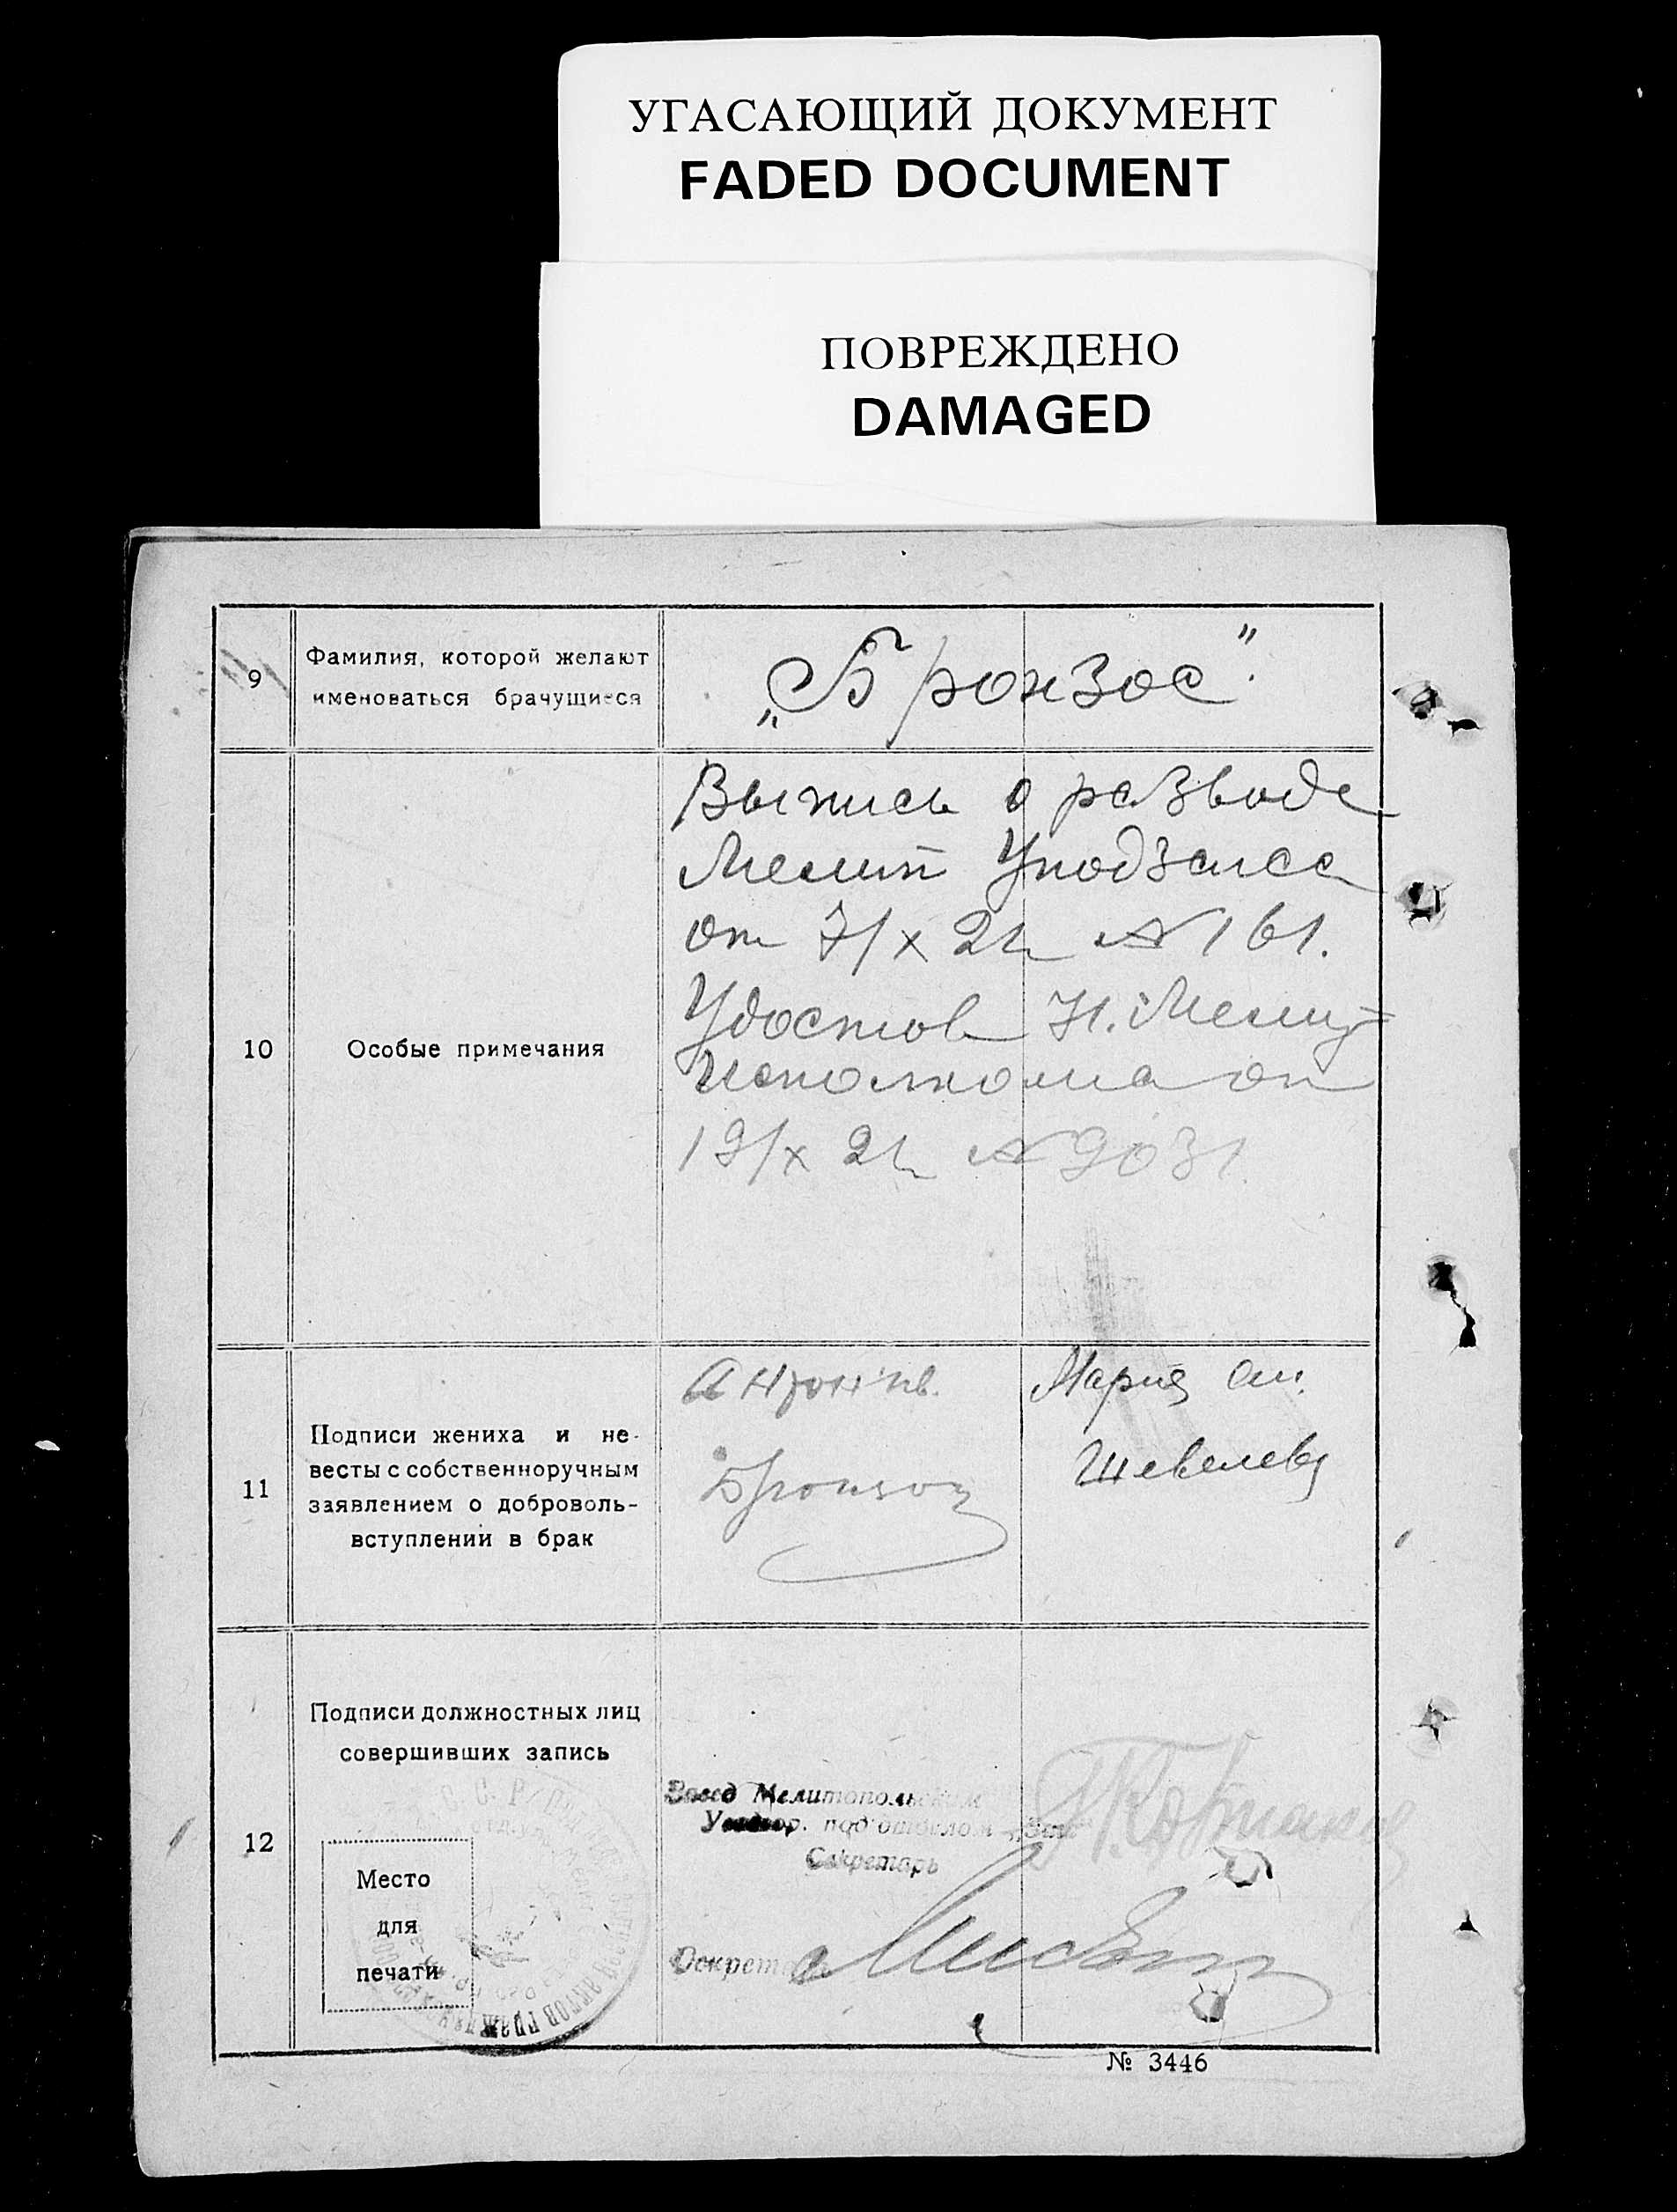 УГАСАЮЩИЙ ДОКУМЕНТ
FADED DOCUMENT
ПОВРЕЖДЕНО
DAMAGED
9
Фамилия, которой желают
именоваться брачущиеся
„Бронзос".
10
Особые примечания
Выпись о разводе
Мелит Уподзагса
от 7/х 21г №161.
Удостов Н. Мелит=
Исполкома от
19/х 21г №9031.
11
Подписи жениха и не-
весты с собственноручным
заявлением о доброволь-
вступлении в брак
Бронзоз
Мария Ан.
Шевелева
12
Подписи должностных лиц
совершивших запись
Место
для
печати
Завед Мелитопольским
под'отделом
Секретарь
Секретарь
№ 3446